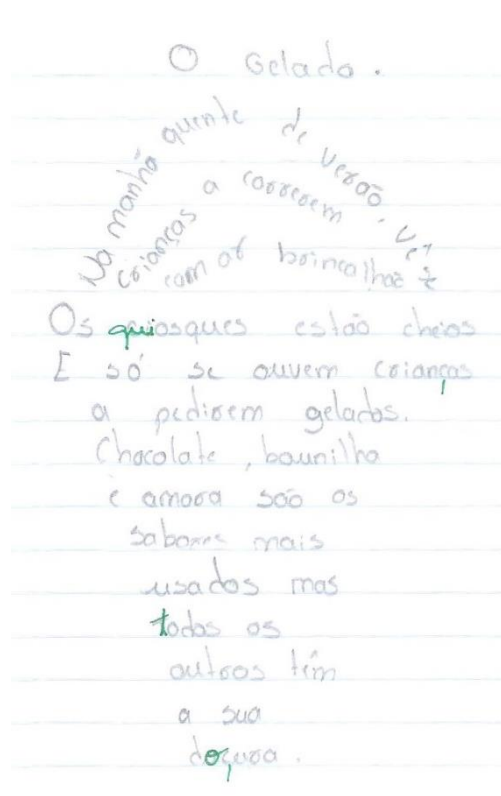 O Gelado.
Na manhã quente de verão, vê-se
crianças a correrem
com ar brincalhão
Os quiosques estão cheios
E só se ouvem crianças
a pedirem gelados.
Chocolate, baunilha
e amora são os
sabores mais
usados mas
todos os
outros têm
a sua
doçura.